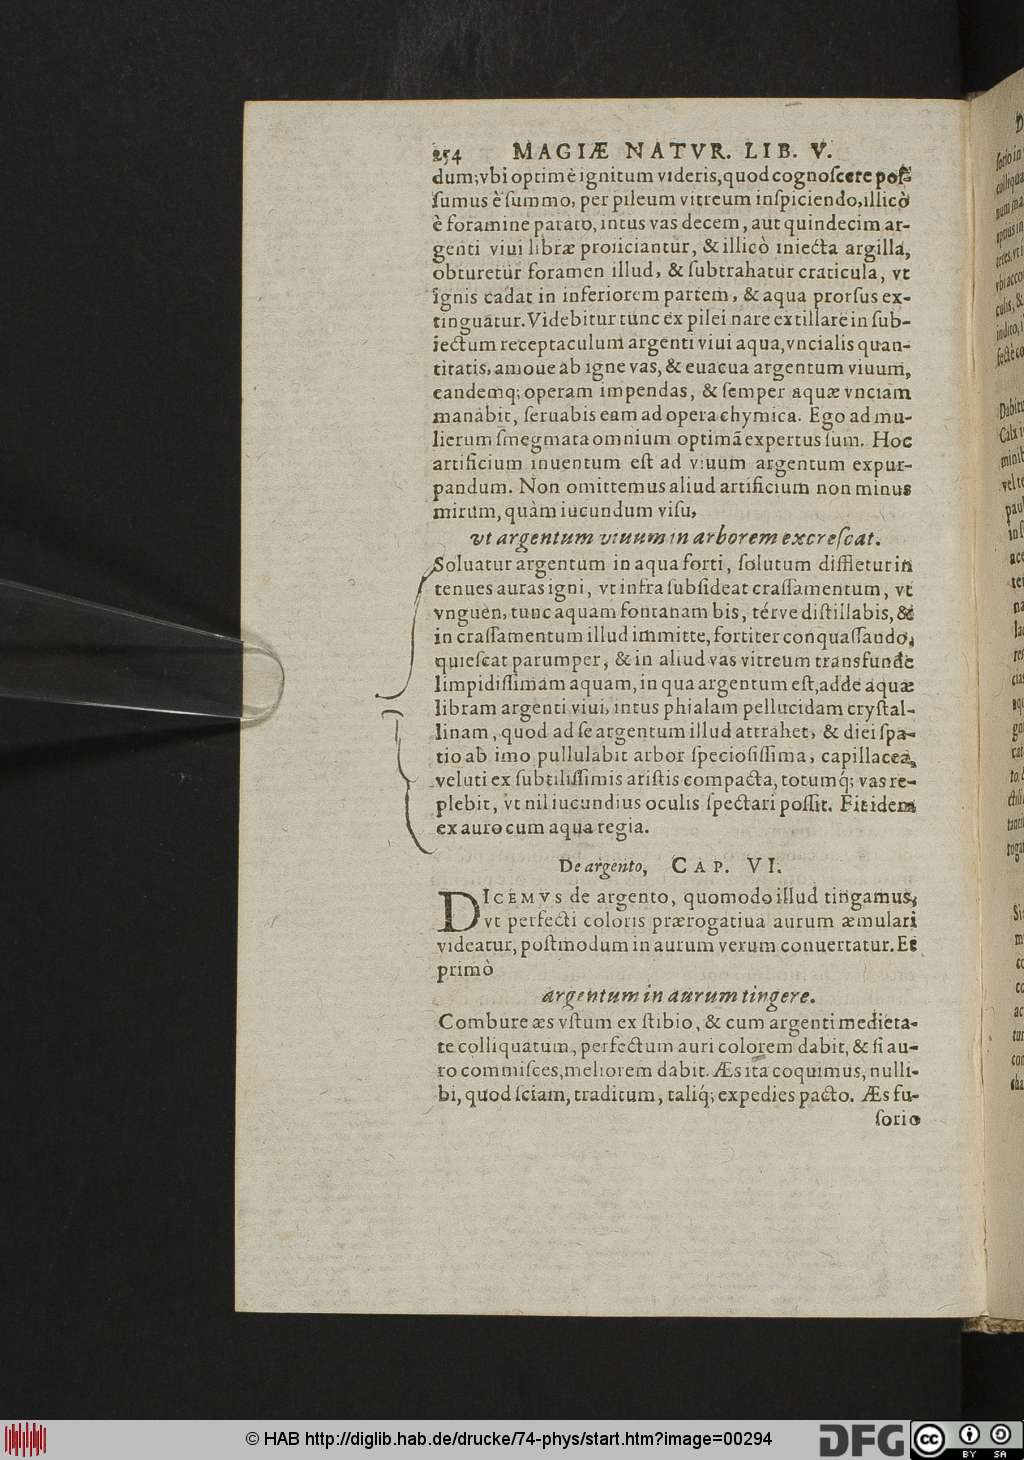 254 MAGIÆ NATVR. LIB. V.
dum; vbi optimè ignitum videris, quod cognoscere pos-
sumus è summo, per pileum vitreum inspiciendo, illicò
è foramine parato, intus vas decem, aut quindecim ar-
genti viui libræ proiiciantur, & illicò iniecta argilla,
obturetur foramen illud, & subtrahatur craticula, vt
ignis cadat in inferiorem partem, & aqua prorsus ex-
tinguatur. Videbitur tunc ex pilei nare extillare in sub-
iectum receptaculum argenti viui aqua, vncialis quan-
titatis, amoue ab igne vas, & euacua argentum viuum,
eandemq; operam impendas, & semper aquæ vnciam
manabit, seruabis eam ad opera chymica. Ego ad mu-
lierum smegmata omnium optimã expertus sum. Hoc
artificium inuentum est ad viuum argentum expur-
pandum. Non omittemus aliud artificium non minus
mirum, quàm iucundum visu,
vt argentum viuum in arborem excrescat.
Soluatur argentum in aqua forti, solutum diffletur in
tenues auras igni, vt infra subsideat crassamentum, vt
vnguen, tunc aquam fontanam bis, térve distillabis, &
in crassamentum illud immitte, fortiter conquassando,
quiescat parumper, & in aliud vas vitreum transfunde
limpidissimam aquam, in qua argentum est, adde aquæ
libram argenti viui, intus phialam pellucidam crystal-
linam, quod ad se argentum illud attrahet, & diei spa-
tio ab imo pullulabit arbor speciosissima, capillacea,
veluti ex subtilissimis aristis compacta, totumq́; vas re-
plebit, vt nil iucundius oculis spectari possit. Fit idem
ex auro cum aqua regia.
De argento, CAP. VI.
DICEMVS de argento, quomodo illud tingamus,
vt perfecti coloris prærogatiua aurum æmulari
videatur, postmodum in aurum verum conuertatur. Et
primò
argentum in aurum tingere.
Combure æs vstum ex stibio, & cum argenti medieta-
te colliquatum, perfectum auri colorem dabit, & si au-
ro commisces, meliorem dabit. Æs ita coquimus, nulli-
bi, quod sciam, traditum, taliq́; expedies pacto. Æs fu-
sorio
© HAB http://diglib.hab.de/drucke/74-phys/start.htm?image=00294
DFG
cc BY SA